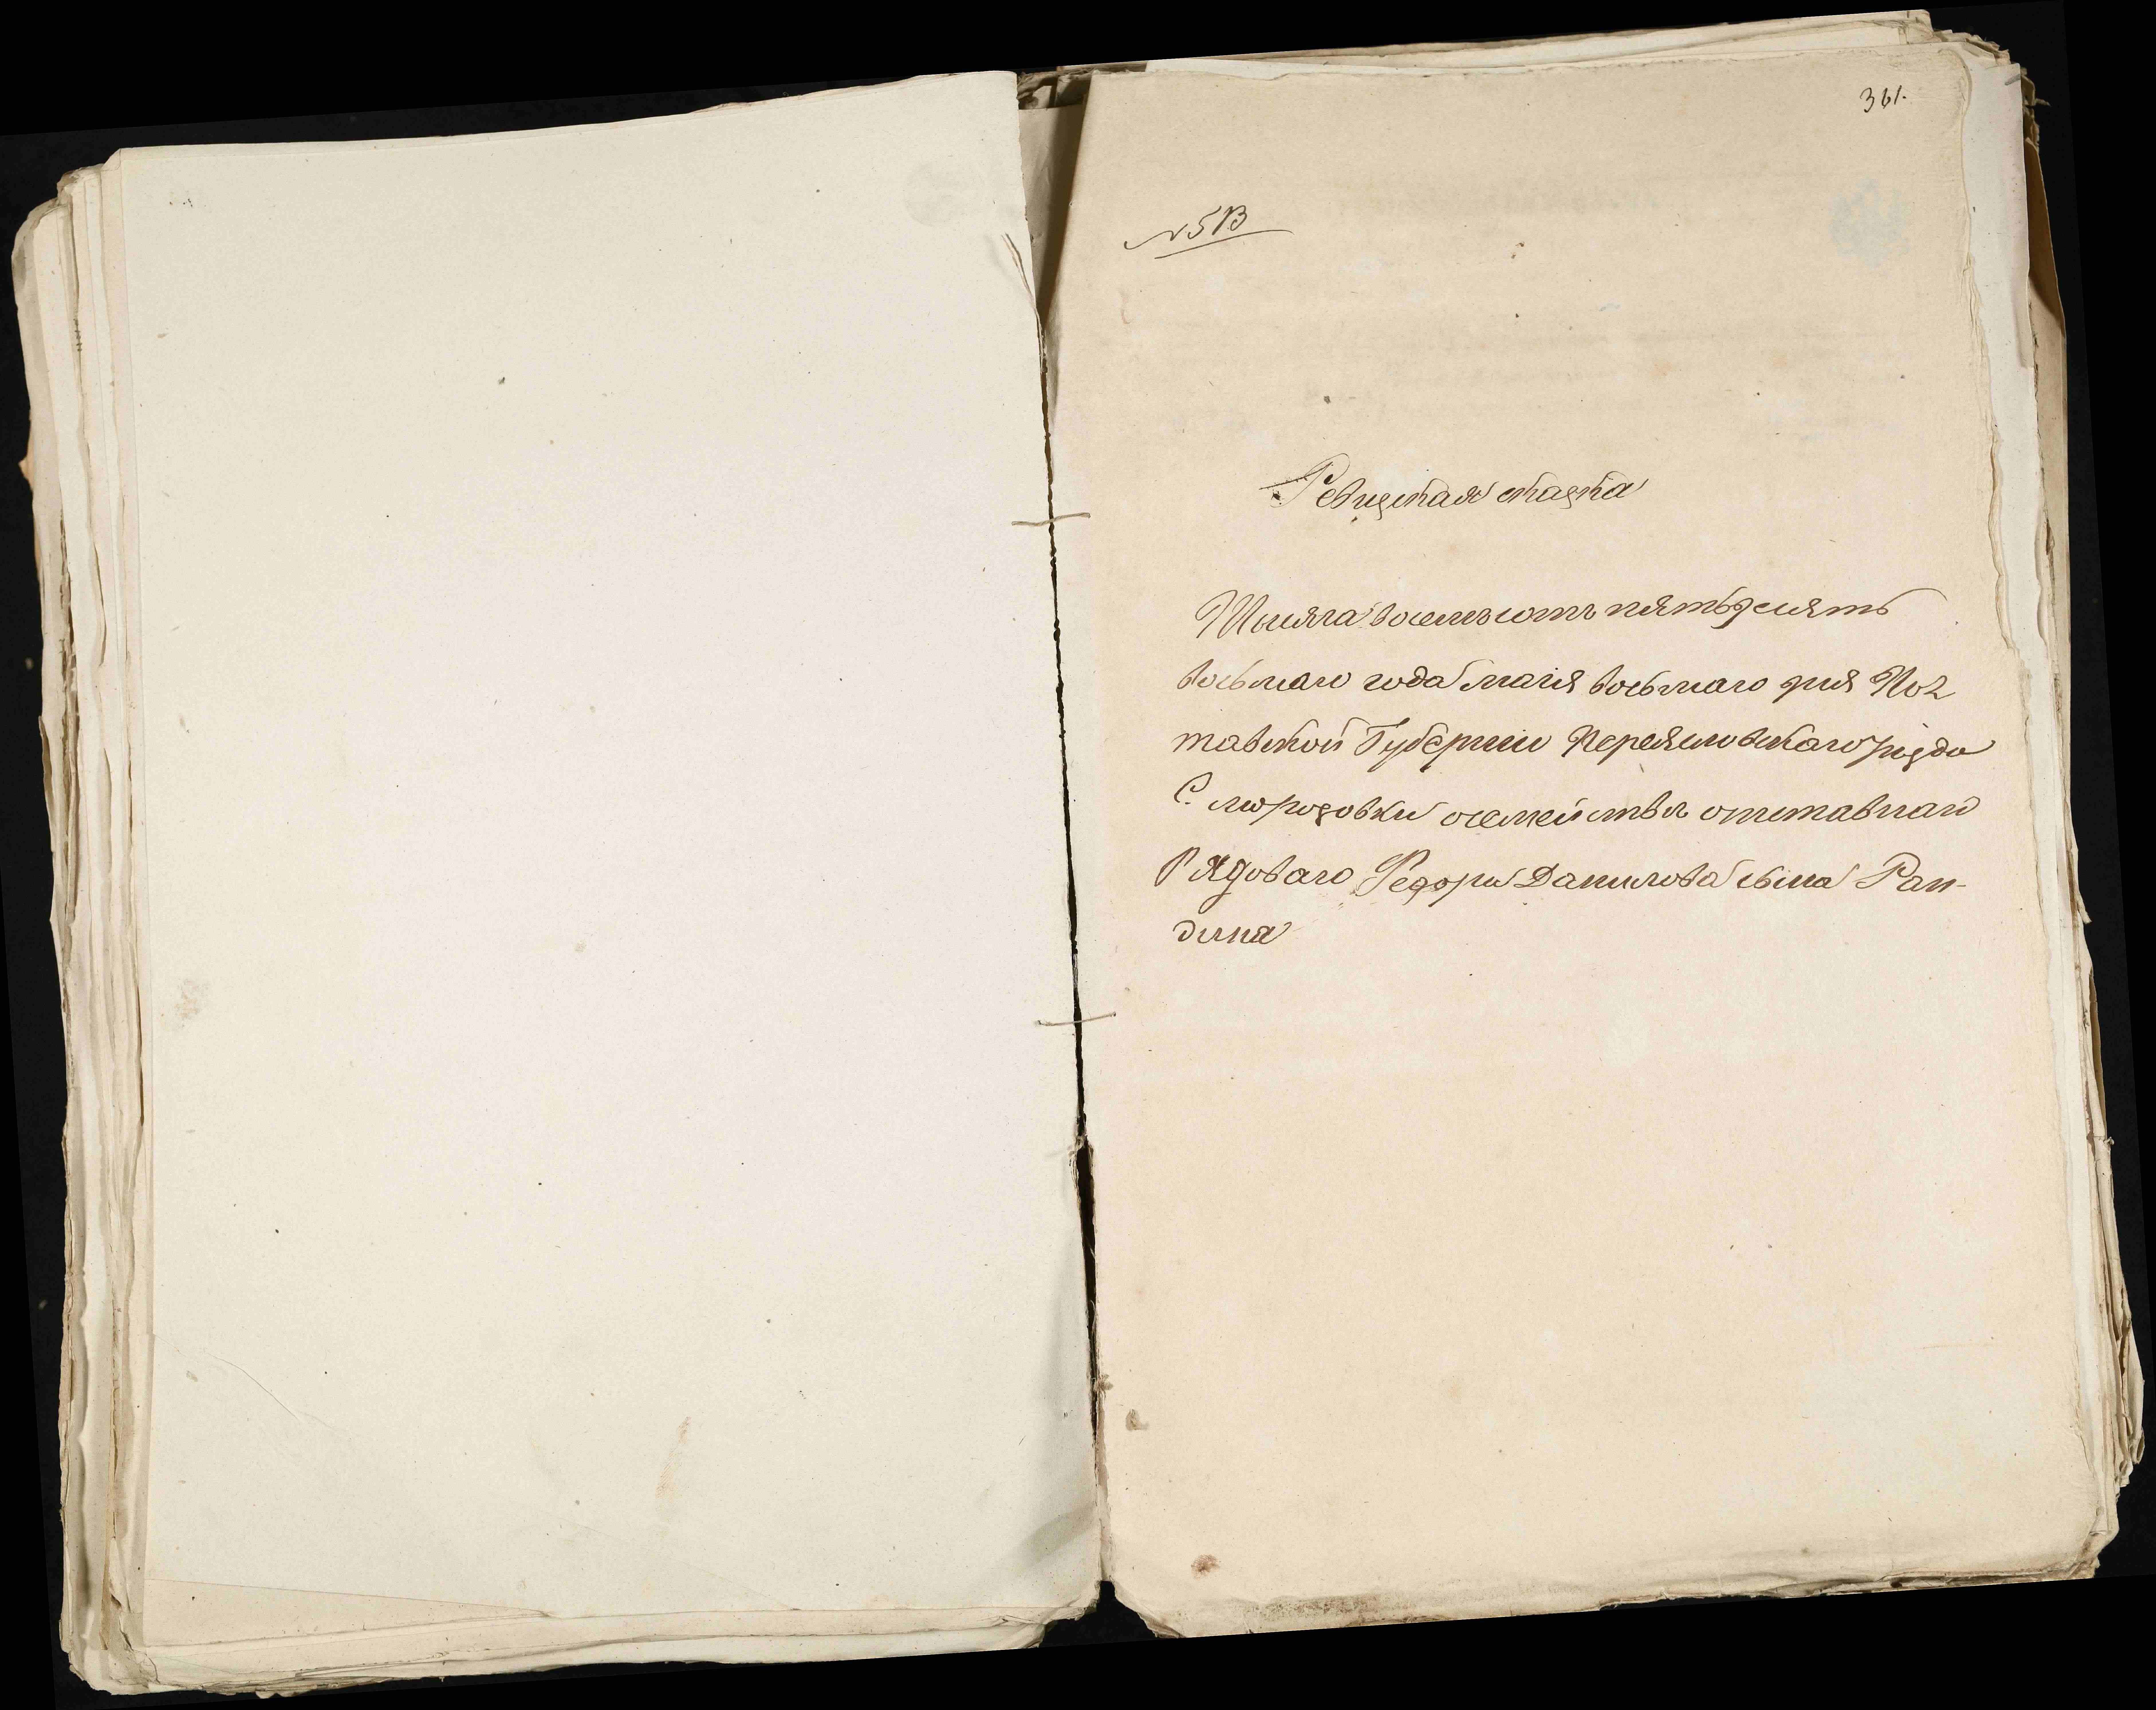 361.
Ревизская сказка
Тысяча восемьсотъ пятьдесятъ
восьмаго года маія восьмаго дня Пол
тавской Губерніи Переяславскаго уезда
С. семействе отставнаго
Рядоваго Федора Данилова сына Ран-